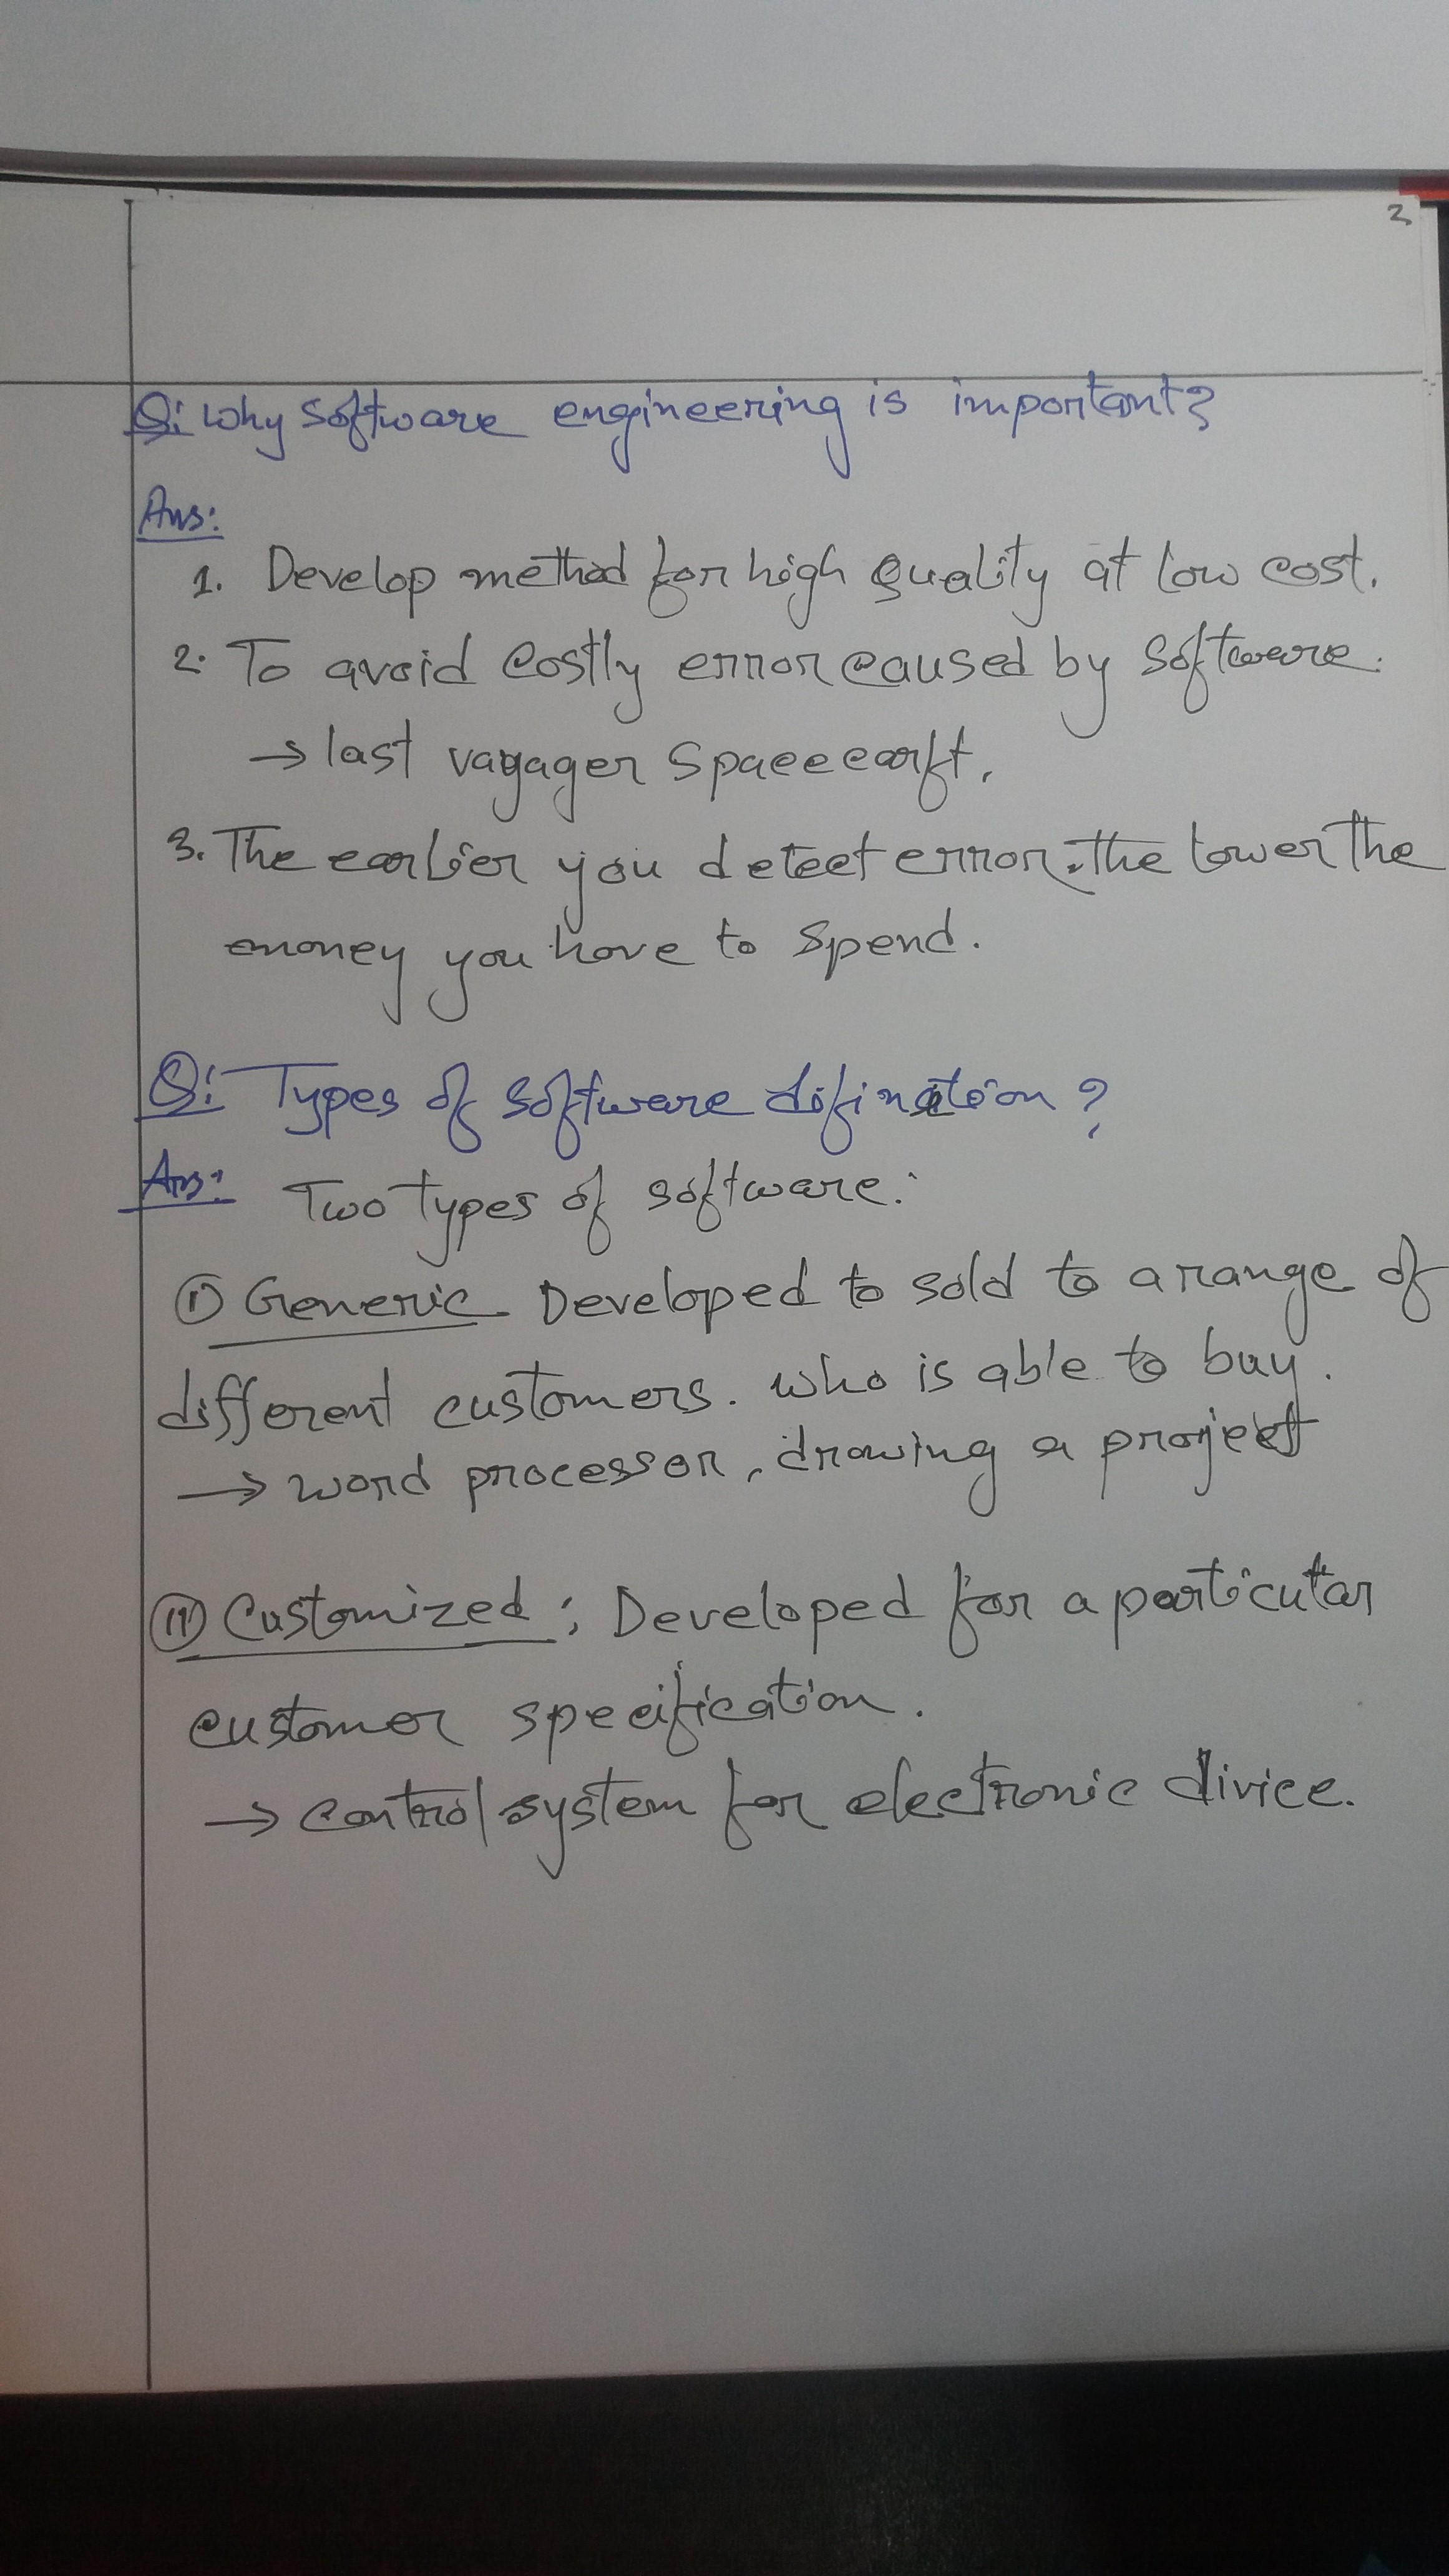 2
Q: Why Software engineering is important?
Ans:
1. Develop method for high quality at low cost.
2. To avoid costly error caused by software.
→ last vayager spacecarft.
3. The earlier you detect error. the lower the
money you have to spend.
Q: Types of software difination?
Ans: Two types of software:
(i) Generic Developed to sold to a range of
different customers. who is able to buy.
→ word processor, drawing a project
(ii) Customized: Developed for a particular
customer specification.
→ control system for electronic divice.